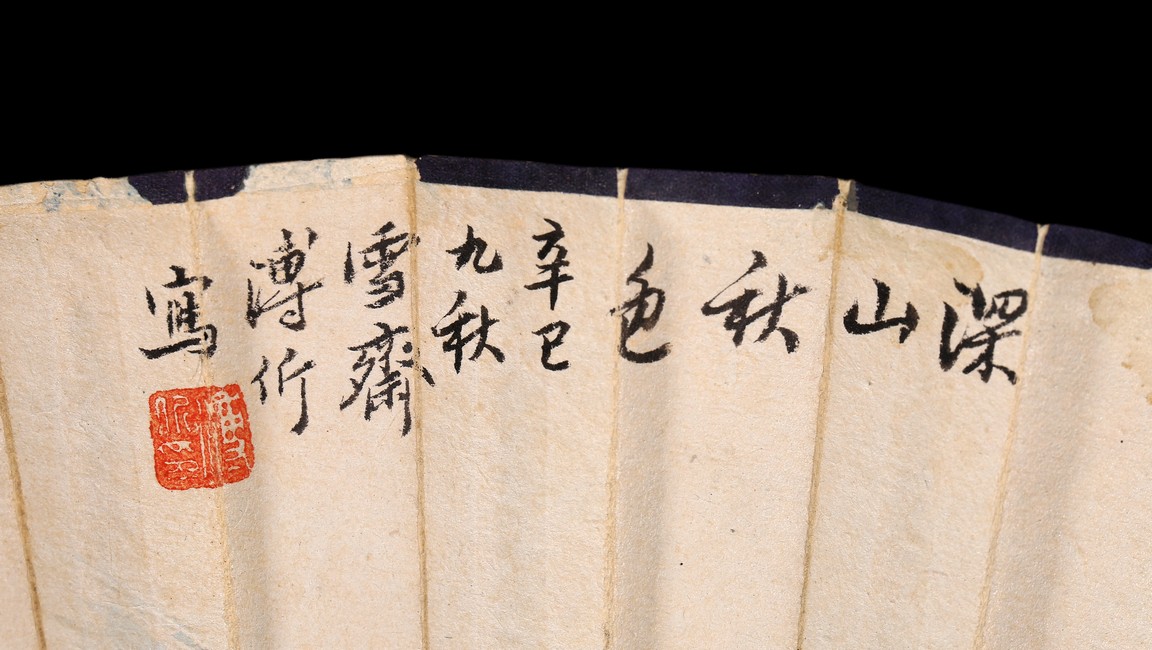 深山秋色
辛巳
九秋
雪齋
溥伒
寫